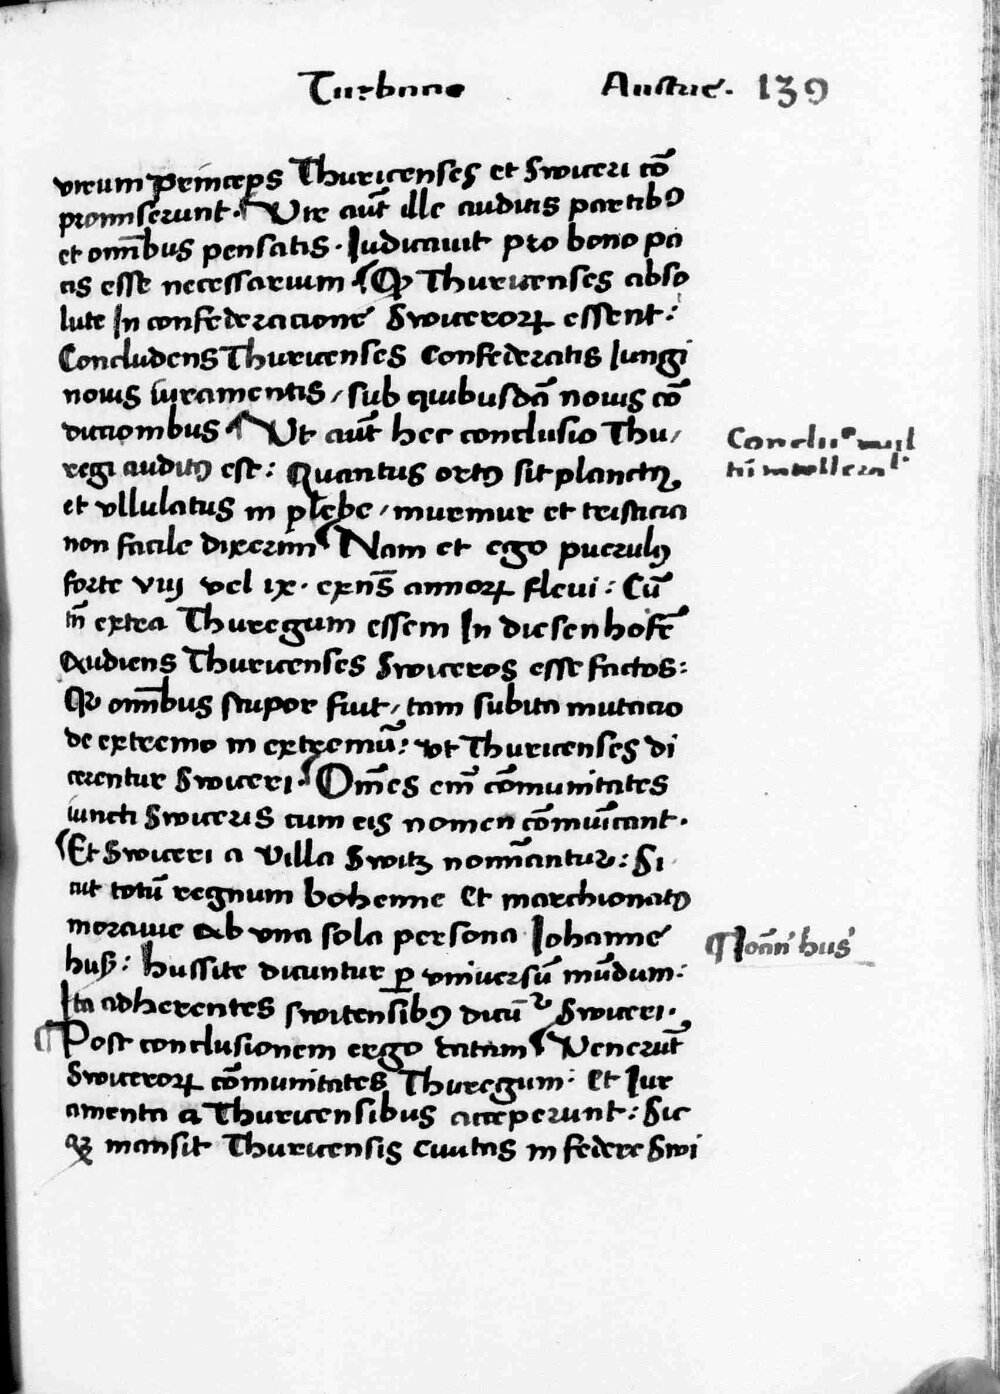 Turbacio Austrie. 139
virum princeps Thuricenses et Switeri cō
promiserunt. Vir aūt ille auditis partibꝰ
et om̄ibus pensatis. Iudicavit pro bono pa
cis esse necessarium Qꝫ Thuricenses abso
lute In confederacione Switerorꝝ essent:
Concludens Thuricenses Confederatis Iungi
novis iuramentis / sub quibusdā novis cō
dicionibus Ut aūt hec conclusio Thu/
regi auditꝰ est: Quantus ortꝰ sit planctꝰ
et ullulatus in plebe / murmur et tristicia
non facile dixerim Nam et ego puerulꝰ
forte viij vel ix. exn̄s annorꝝ flevi: Cū
tn̄ extra Thuregum essem In diesenhofē
Audiens Thuricenses Switeros esse factos:
Qꝫ om̄ibus stupor fuit / tam subita mutacio
de extremo in extremū: ut Thuricenses di
cerentur Switeri. Om̄es em̄ cōmunitates
iuncti Switeris cum eis nomen cōmuīcant.
Et Switeri a villa Switz nomīantur: Si
cut totū regnum bohemie et marchionatꝰ
moravie ab una sola persona Iohanne
huß: hussite dicuntur ꝑ universū mūdum:
Ita adherentes switensibꝰ dicūtᷣ Switeri.
Post conclusionem ergo datam Venerūt
Switerorꝝ cōmunitates Thuregum: et Iur
amenta a Thuricensibus acceperunt: Sic
qꝫ mansit Thuricensis civitas in federe Swi
Ioān hus